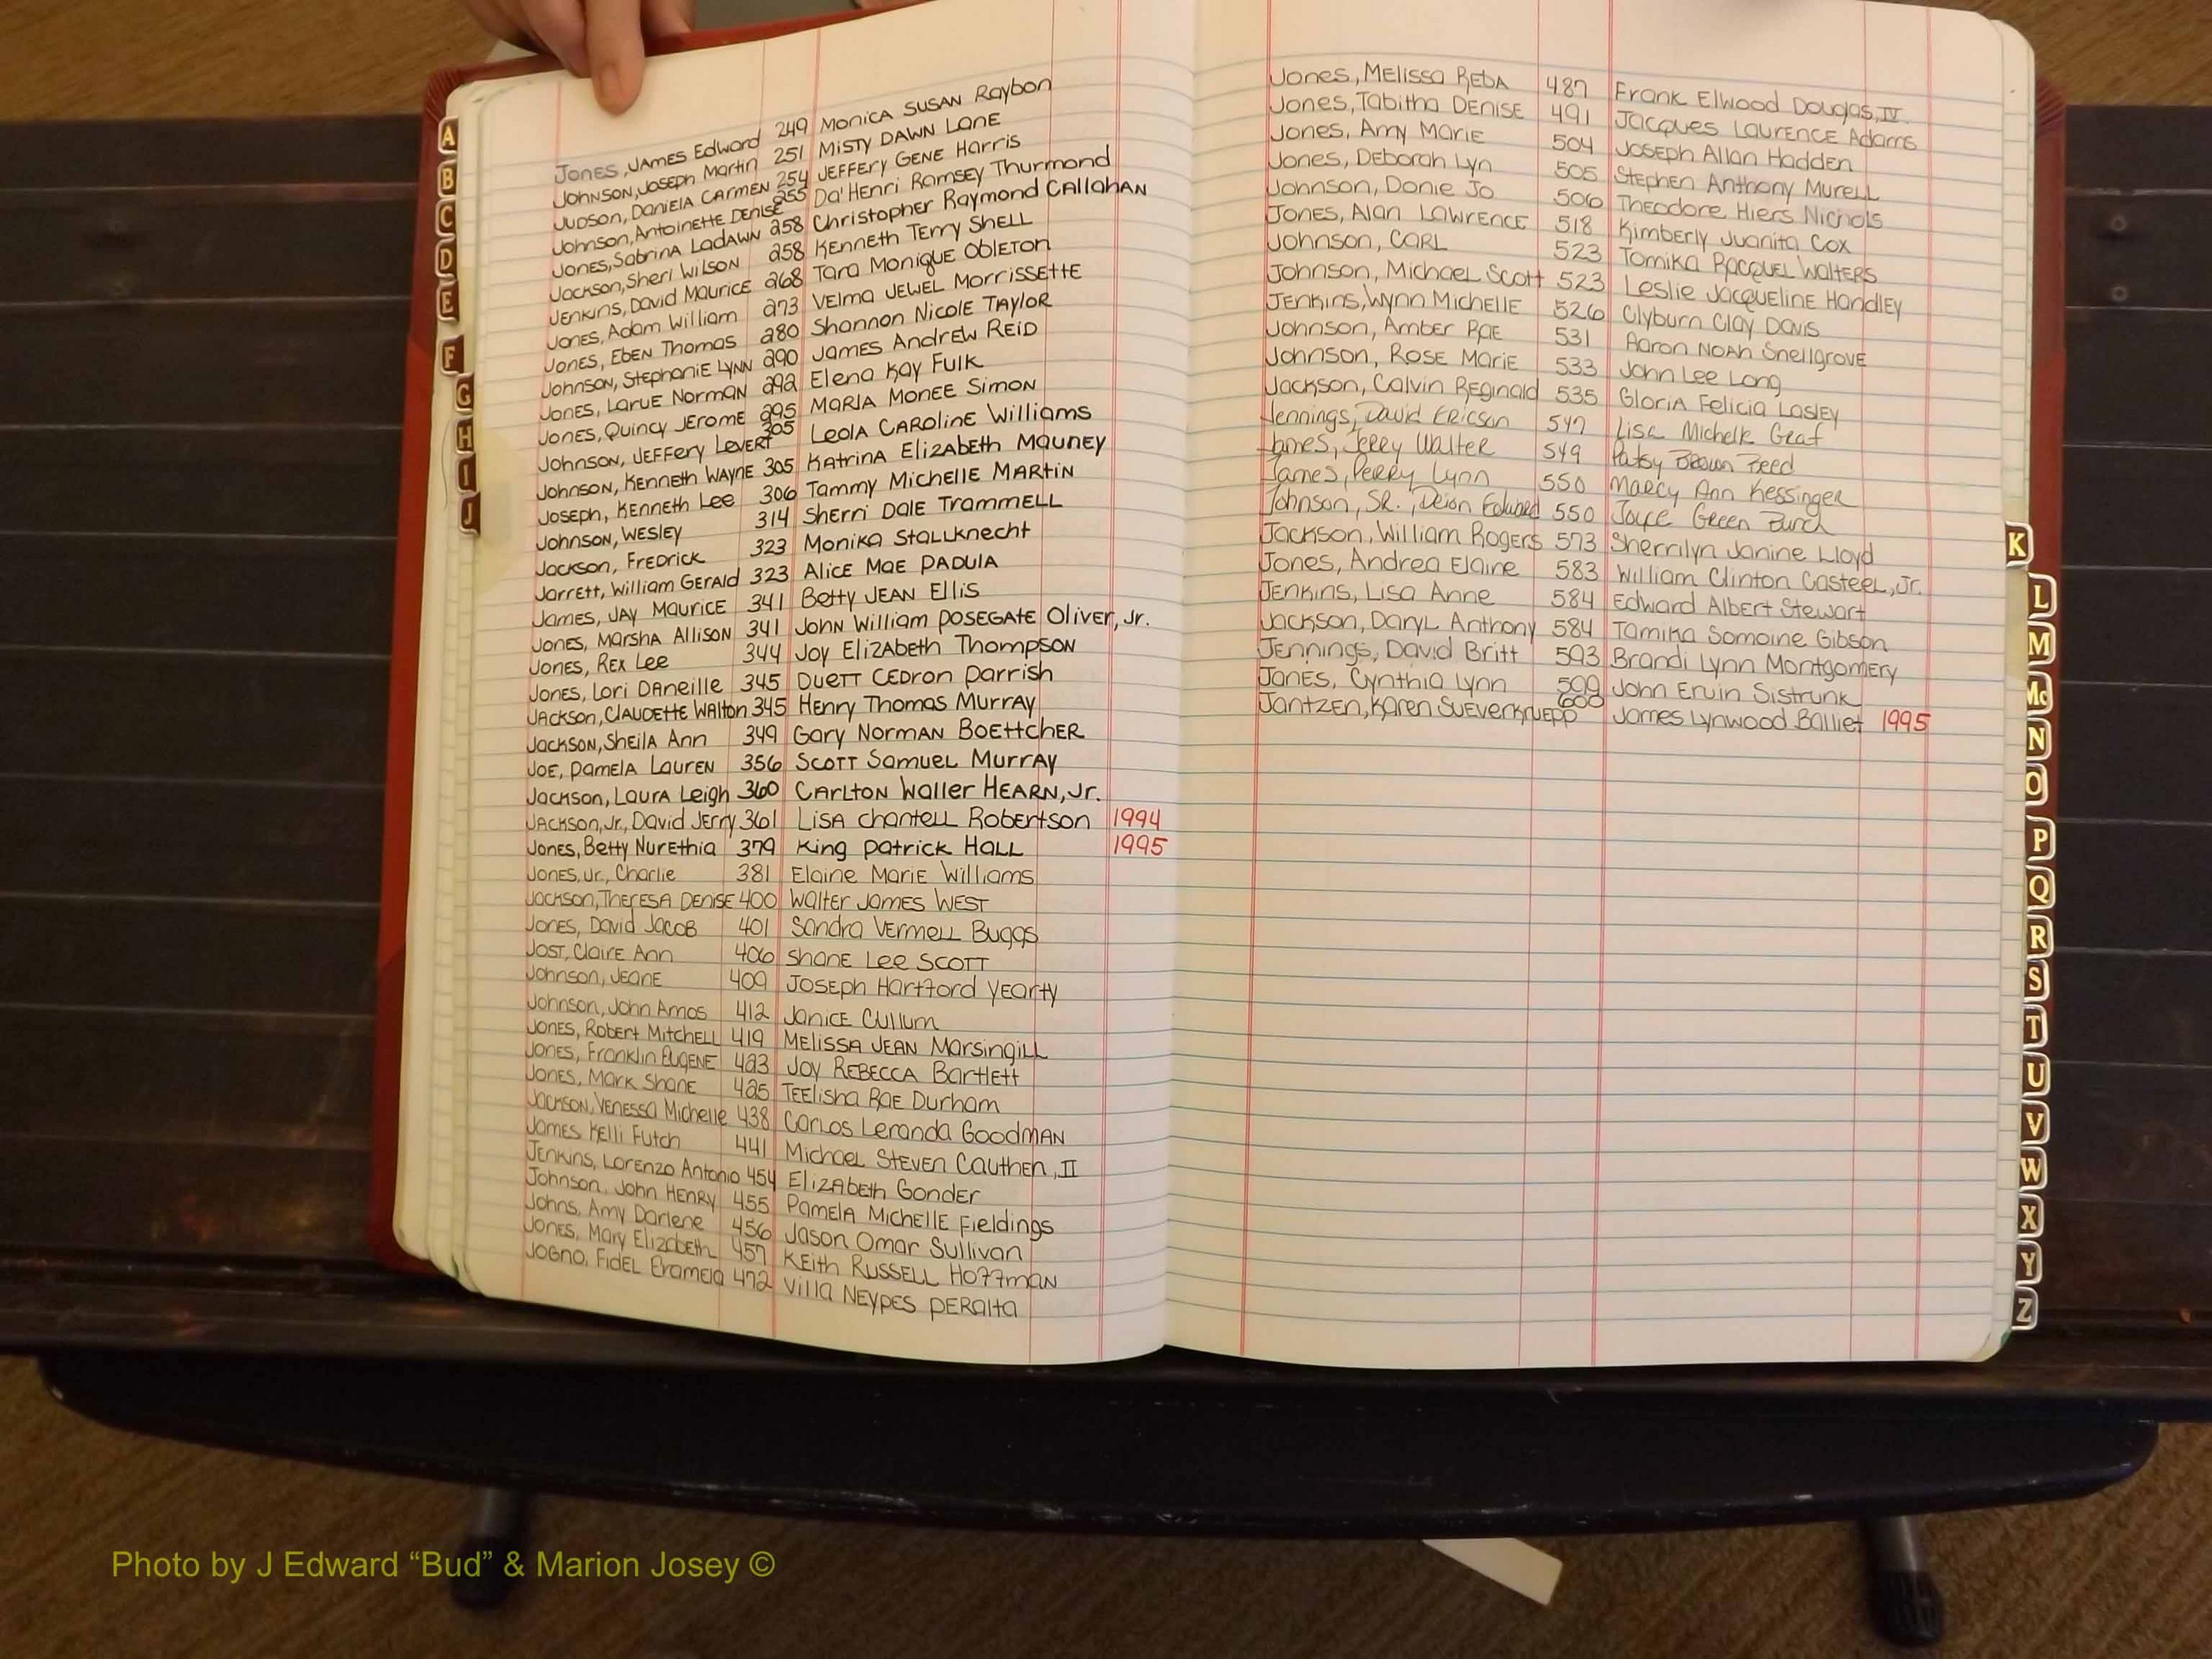 A
B
C
D
E
F
G
H
I
J
Jones, James Edward 249 Monica Susan Raybon
Johnson, Joseph Martin 251 Misty Dawn Lane
Judson, Daniela Carmen 254 Jeffery Gene Harris
Johnson, Antoinette Denise 255 Da'Henri Ramsey Thurmond
Jones, Sabrina Ladawn 258 Christopher Raymond Callahan
Jackson, Sheri Wilson 258 Kenneth Terry Shell
Jenkins, David Maurice 268 Tara Monique Obleton
Jones, Adam William 273 Velma Jewel Morrissette
Jones, Eben Thomas 280 Shannon Nicole Taylor
Johnson, Stephanie Lynn 290 James Andrew Reid
Jones, Larue Norman 292 Elena Kay Fulk
Jones, Quincy Jerome 295 Maria Monee Simon
Johnson, Jeffery Levert 305 Leola Caroline Williams
Johnson, Kenneth Wayne 305 Katrina Elizabeth Mauney
Joseph, Kenneth Lee 306 Tammy Michelle Martin
Johnson, Wesley 314 Sherri Dale Trammell
Jackson, Fredrick 323 Monika Stallknecht
Jarrett, William Gerald 323 Alice Mae Padula
James, Jay Maurice 341 Betty Jean Ellis
Jones, Marsha Allison 341 John William Posegate Oliver, Jr.
Jones, Rex Lee 344 Joy Elizabeth Thompson
Jones, Lori Daneille 345 Duett Cedron Parrish
Jackson, Claudette Walton 345 Henry Thomas Murray
Jackson, Sheila Ann 349 Gary Norman Boettcher
Joe, Pamela Lauren 356 Scott Samuel Murray
Jackson, Laura Leigh 360 Carlton Waller Hearn, Jr.
Jackson, Jr., David Jerry 361 Lisa Chantell Robertson 1994
Jones, Betty Nurethia 379 King Patrick Hall 1995
Jones, Jr., Charlie 381 Elaine Marie Williams
Jackson, Theresa Denise 400 Walter James West
Jones, David Jacob 401 Sandra Vermell Buggs
Jost, Claire Ann 406 Shane Lee Scott
Johnson, Jeane 409 Joseph Hartford Yearty
Johnson, John Amos 412 Janice Cullum
Jones, Robert Mitchell 419 Melissa Jean Marsingill
Jones, Franklin Eugene 423 Joy Rebecca Bartlett
Jones, Mark Shane 425 Teelisha Rae Durham
Jackson, Venessa Michelle 438 Carlos Leronda Goodman
James Kelli Futch 441 Michael Steven Cauthen, II
Jenkins, Lorenzo Antonio 454 Elizabeth Gonder
Johnson, John Henry 455 Pamela Michelle Fieldings
Johns, Amy Darlene 456 Jason Omar Sullivan
Jones, Mary Elizabeth 457 Keith Russell Hoffman
Jogno, Fidel Eramela 472 Villa Neypes Peralta
Jones, Melissa Reba 487 Frank Elwood Douglas, IV.
Jones, Tabitha Denise 491 Jacques Laurence Adams
Jones, Amy Marie 504 Joseph Allan Hadden
Jones, Deborah Lyn 505 Stephen Anthony Murell
Johnson, Donie Jo 506 Theodore Hiers Nichols
Jones, Alan Lawrence 518 Kimberly Juanita Cox
Johnson, Carl 523 Tomika Racquel Walters
Johnson, Michael Scott 523 Leslie Jacqueline Handley
Jenkins, Wynn Michelle 526 Clyburn Clay Davis
Johnson, Amber Rae 531 Aaron Noah Snellgrove
Johnson, Rose Marie 533 John Lee Long
Jackson, Calvin Reginald 535 Gloria Felicia Lasley
Jennings, David Ericson 547 Lisa Michelle Graf
James, Jerry Walter 549 Patsy Brown Reed
James, Perry Lynn 550 Marcy Ann Kessinger
Johnson, Sr., Deion Edward 550 Joyce Green Burch
Jackson, William Rogers 573 Sherrilyn Janine Lloyd
Jones, Andrea Elaine 583 William Clinton Casteel, Jr.
Jenkins, Lisa Anne 584 Edward Albert Stewart
Jackson, Daryl Anthony 584 Tamika Somoine Gibson
Jennings, David Britt 593 Brandi Lynn Montgomery
Jones, Cynthia Lynn 599 John Ervin Sistrunk
Jantzen, Karen Sueverkruepp 600 James Lynwood Balliet 1995
K
L
M
Mc
N
O
P
Q
R
S
T
U
V
W
X
Y
Z
Photo by J Edward “Bud” & Marion Josey ©